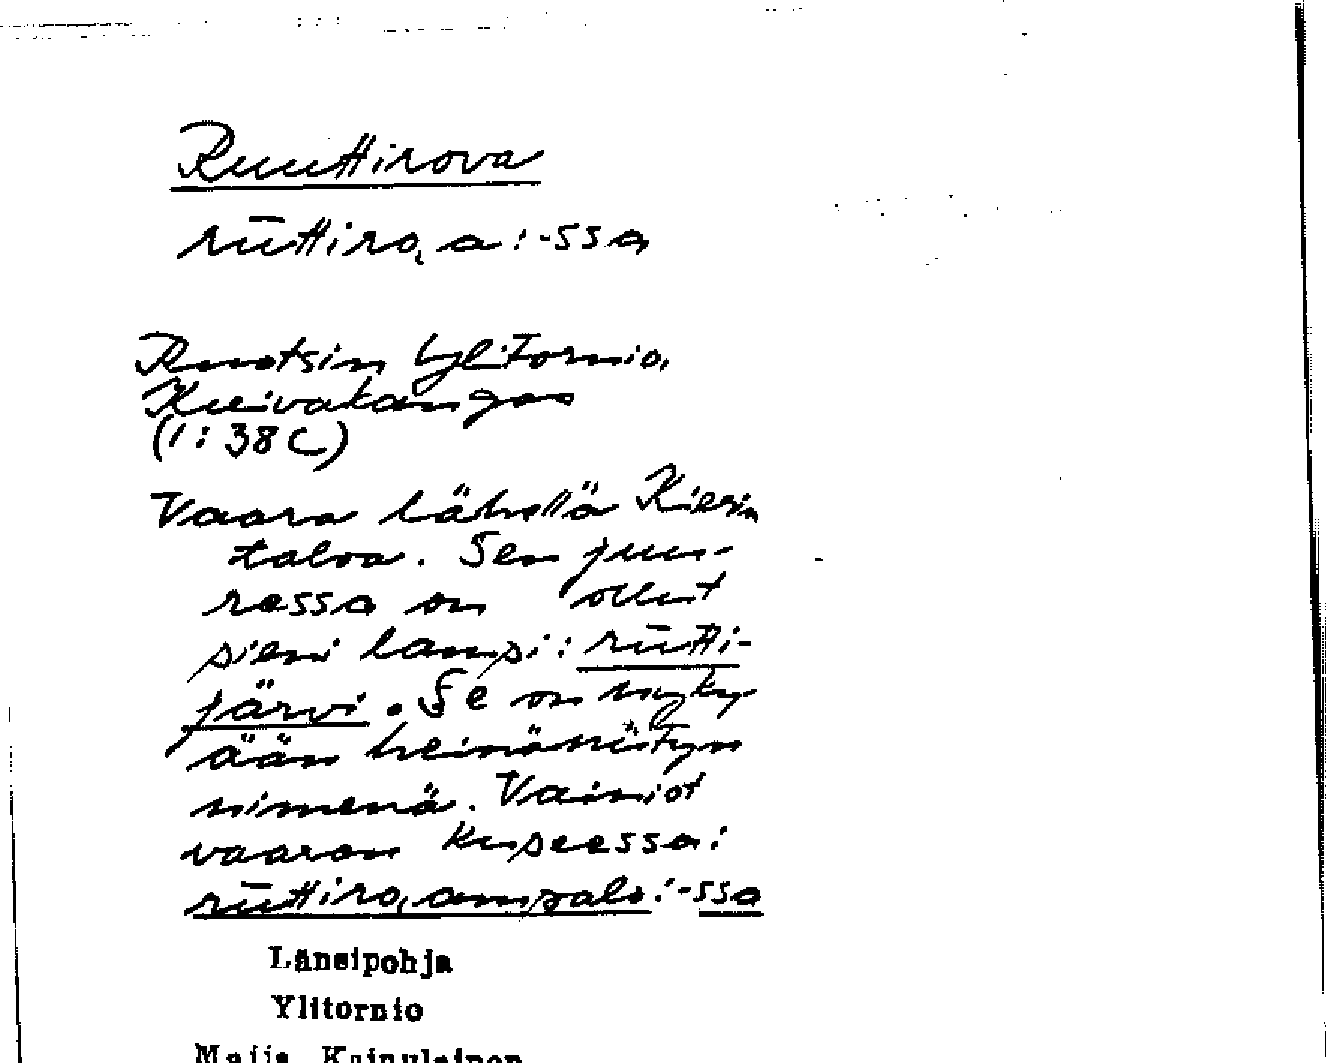 Ruuttirova
rūttiro, a: -ssa
Ruotsin Ylitornio,
Kuivakangas
(1:38C)
Vaara lähellä Kierin
taloa. Sen juu-
ressa on ollut
pieni lampi: rūtti-
järvi. Se on nyky
ään heinäniityn
nimenä. Vainiot
vaaran kupeessa:
rūttiro, ampalo: -ssa
Länsipohja
Ylitornio
Maija Kainulainen